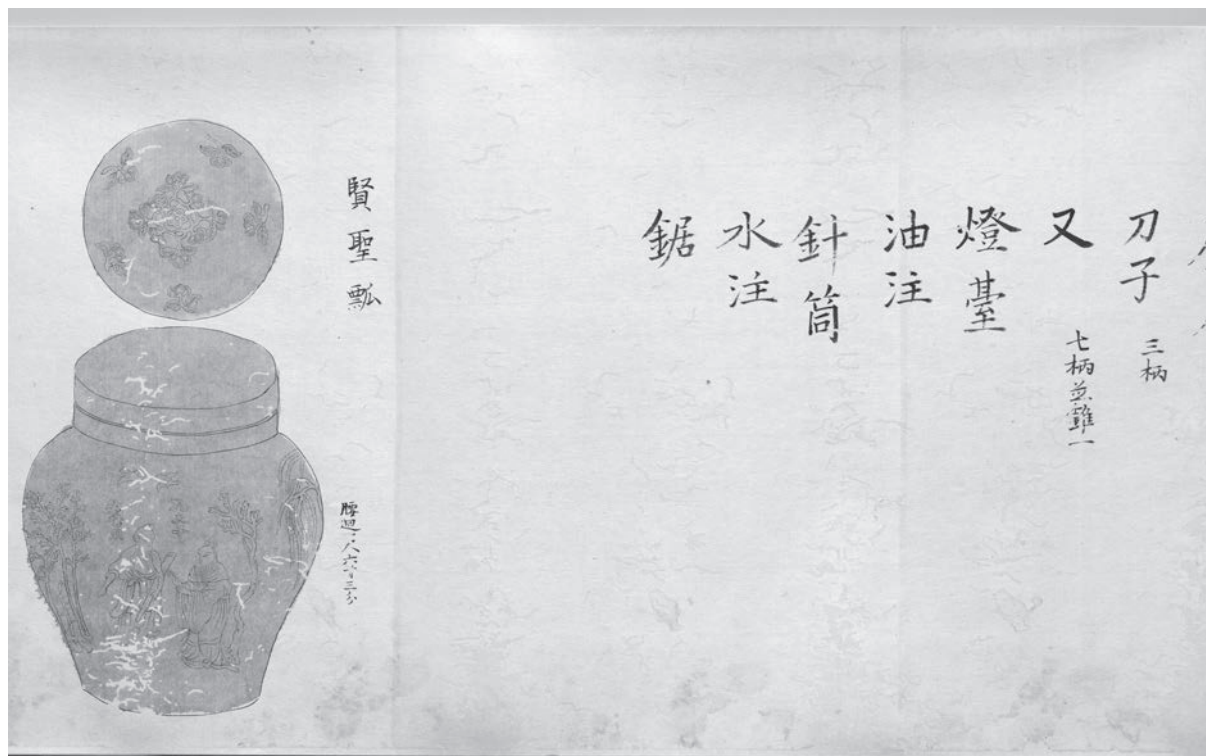 刀子 三柄
又 七柄並錐一
燈臺
油注
針筒
水注
鋸
賢聖瓢
腰迴二尺六寸三分